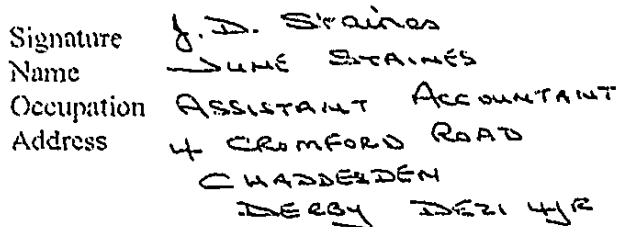 Signature J.D. Staines
Name JUNE STAINES
Occupation ASSISTANT ACCOUNTANT
Address 4 CROMFORD ROAD
CHADDESDEN
DERBY DE21 4JR